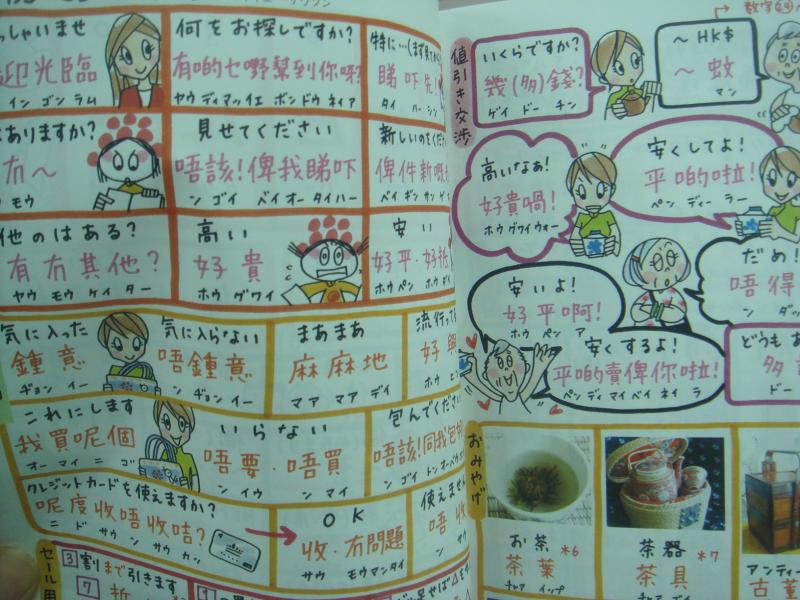 っしゃいませ
迎光臨
イン ゴン ラム
何をお探しですか?
有啲乜嘢幫到你呀?
ヤウ ディ マッイェ ボン ドウ ネイ ア
睇吓先!
タイ ハー シン
ありますか?
冇〜
モウ
見せてください
唔該!俾我睇吓
ン ゴイ ベイ オー タイ ハー
新しいのをくだ
俾件新嘅
ベイ ギン サン ゲ
他のはある?
有冇其他?
ヤウ モウ ケイ ター
高い
好貴
ホウ グワイ
安い
好平・好抵
ホウ ペン ホウ
気に入った
鍾意
ヂョン イー
気に入らない
唔鍾意
ン ヂョン イー
まあまあ
麻麻地
マア マア デイ
流行って
好
ホウ
これにします
我買呢個
オー マイ ニ ゴ
いらない
唔要・唔買
ン イウ ン マイ
包んでくださ
唔該!同我包
ン ゴイ トン オー
クレジットカードを使えますか?
呢度收唔收咭?
ニ ドウ サウ ン サウ カッ
OK
收・冇問題
サウ モウ マン タイ
使えません
唔收
ン サウ
セール用
3割まで引きます
7
値引き交渉
いくらですか?
幾(多)錢?
ゲイ ドー チン
数字
〜HK$
〜蚊
マン
高いなあ!
好貴喎!
ホウ グワイ ウォー
安くしてよ!
平啲啦!
ペン ディー ラー
安いよ!
好平啊!
ホウ ペン ア
だめ!
唔得
ン ダッ
安くするよ!
平啲賣俾你啦!
ペン ディ マイ ベイ ネイ ラ
どうも
多
ドー
おみやげ
お茶 *6
茶葉
チャア イップ
茶器 *7
茶具
チャア
アンティー
古董